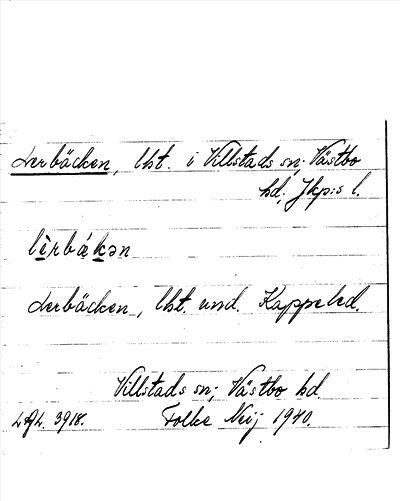 Lerbäcken, lht. i Villstads sn; Västbo
hd, Jkp:s l.
lèrbǽkən
Lerbäcken, lht. und. Kappebed.
Villstads sn; Västbo hd
Folke Neij 1940.
LAL. 3918.